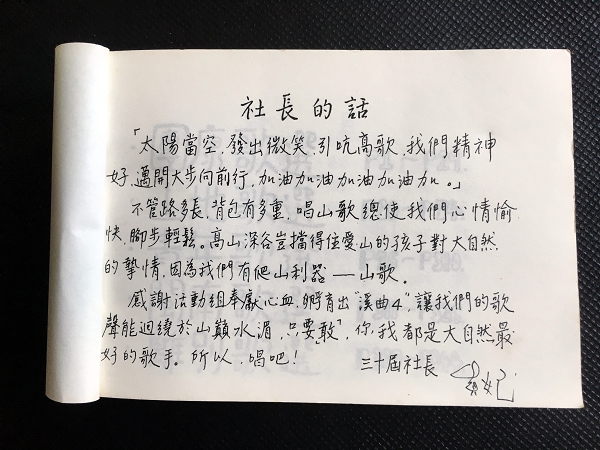 社長的話
「太陽當空,發出微笑,引吭高歌,我們精神
好,邁開大步向前行,加油加油加油加油加。」
不管路多長,背包有多重,唱山歌總使我們心情愉
快,腳步輕鬆。高山深谷豈擋得住愛山的孩子對大自然
的摯情,因為我們有爬山利器——山歌。
感謝活動組奉獻心血,孵育出"溪曲4",讓我們的歌
聲能迴繞於山巔水湄,只要敢",你我都是大自然最
好的歌手。所以,唱吧!
三十屆社長